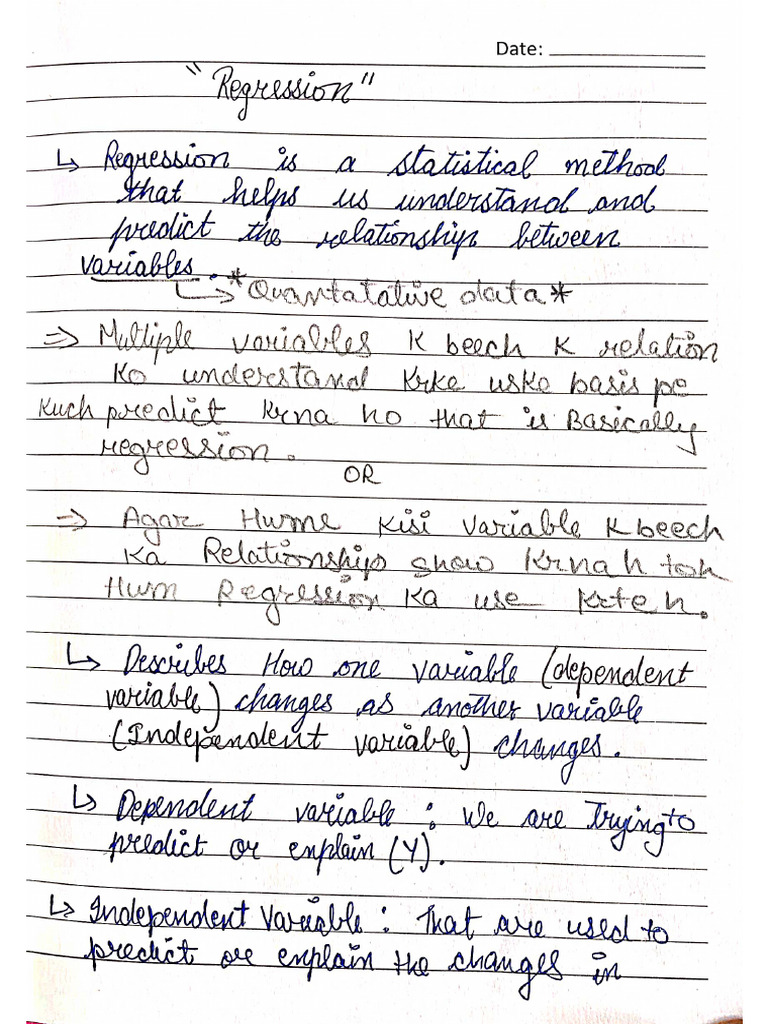 Date:
"Regression"
↳ Regression is a statistical method
that helps us understand and
predict the relationship between
variables.
↳ *Quantatative data*
⇒ Multiple variables K beech K relation
Ko understand Krke uske basis pe
Kuch predict Krna ho that is Basically
regression.
OR
⇒ Agar Hume Kisi variable K beech
Ka Relationships show Krna h toh
Hum Regression Ka use krte h.
↳ Describes How one variable (dependent
variable) changes as another variable
(Independent variable) changes.
↳ Dependent variable : We are trying to
predict or explain (Y).
↳ Independent Variable : That are used to
predict or explain the changes in